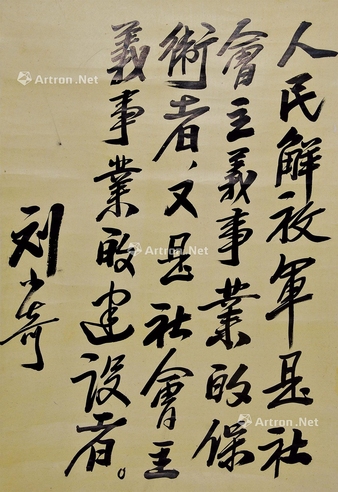 人民解放軍是社
會主義事業的保
衛者，又是社會主
義事業的建设者。
刘少奇
Artron.Net
Artron.Net
Artron.Net